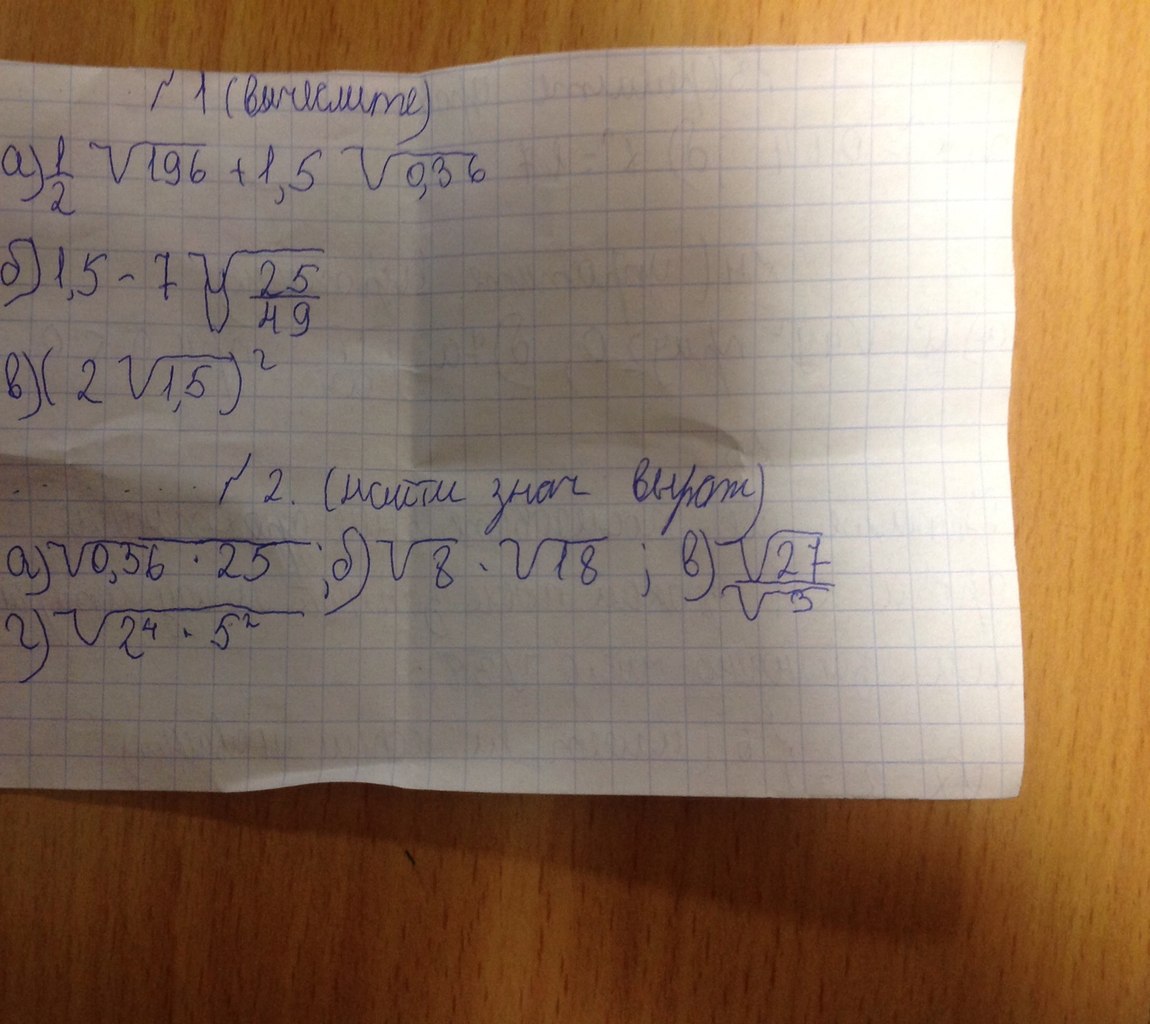 №1 (вычеслите)
а) 1/2 √196 + 1,5 √0,36
б) 1,5 - 7 √25/49
в) (2 √1,5)²
№2. (найти знач выраж)
а) √0,36 · 25 ; б) √8 · √18 ; в) √27/√3
г) √2⁴ · 5²